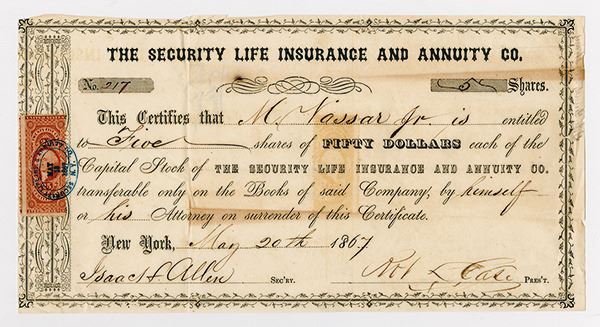 THE SECURITY LIFE INSURANCE AND ANNUITY CO.
No. 217 5 Shares.
This Certifies that M. Vassar Jr. is entitled
to Five shares of FIFTY DOLLARS each of the
Capital Stock of THE SECURITY LIFE INSURANCE AND ANNUITY CO.
transferable only on the Books of said Company, by himself
or his Attorney on surrender of this Certificate.
New York, May 20th 1867
Isaac H. Allen Sec'ry. Rob L Case Pres't.